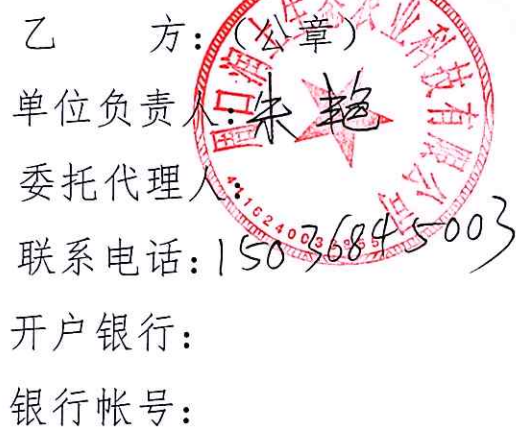 乙 方:(公章)
单位负责人:朱艳
委托代理人:
联系电话:15036845003
开户银行:
银行帐号:
周口润 生态农业科技有限公司